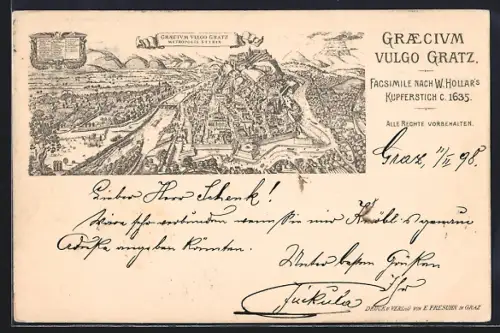 GRÆCIVM VULGO GRATZ
METROPOLIS STYRIÆ
GRÆCIVM
VULGO GRATZ.
FACSIMILE NACH W. HOLLAR'S
KUPFERSTICH C. 1635.
ALLE RECHTE VORBEHALTEN.
Graz, 11/II 98.
Lieber Herr Schenk!
Wäre sehr verbunden wenn Sie mir Knöbl's genaue
Adresse angeben könnten.
Unter besten Grüßen
Ihr
DRUCK U. VERLAG VON E. PRESUHN IN GRAZ